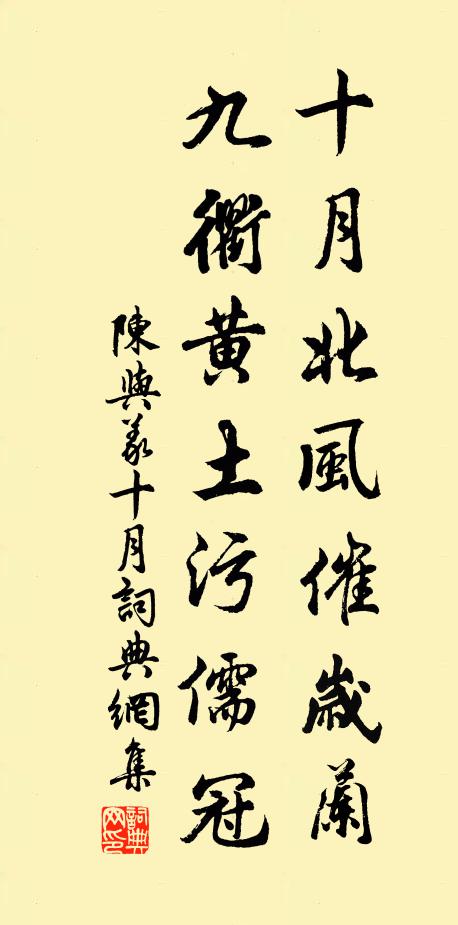 十月北風催歲蘭
九衢黃土污儒冠
陳與義十月詞典網集
詞典網印